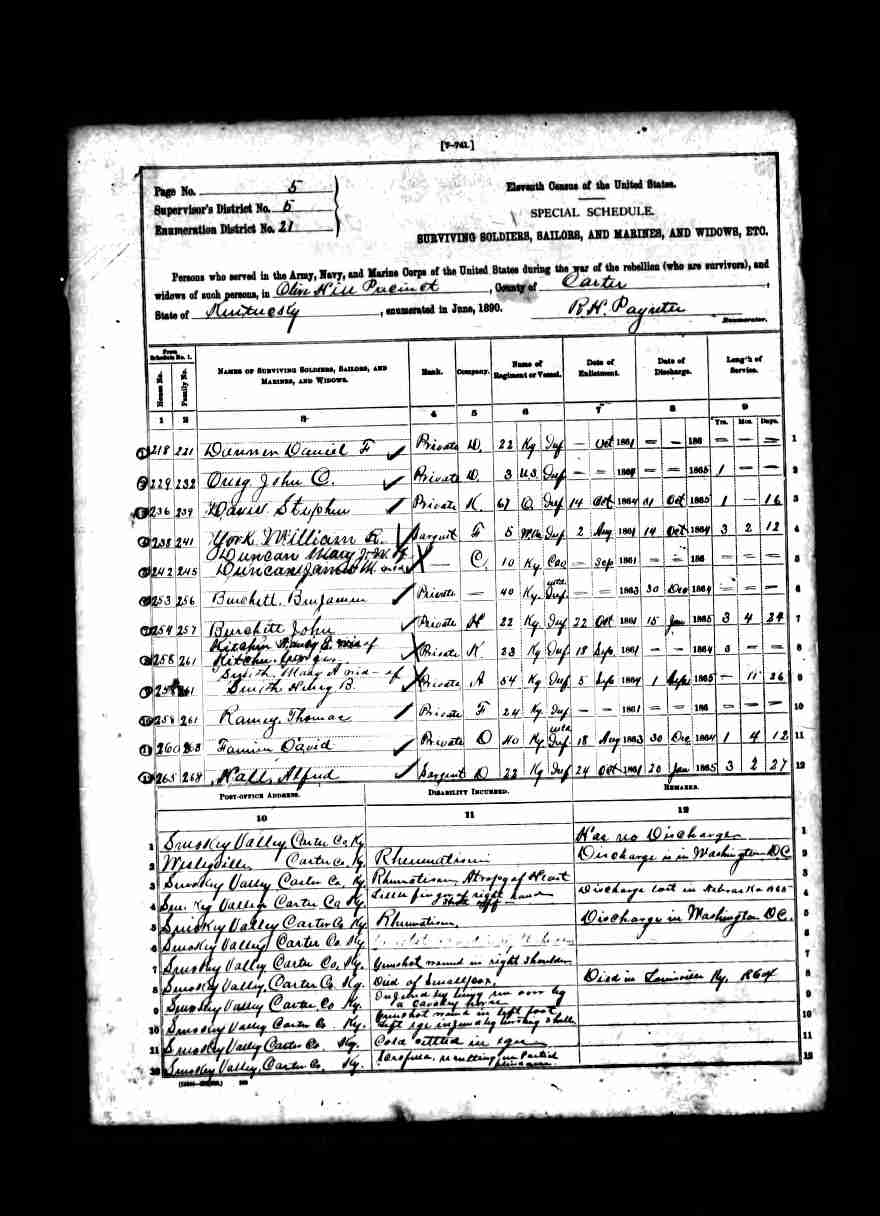 [7-761.]
Page No. 5
Supervisor's District No. 5
Enumeration District No. 21
Eleventh Census of the United States.
SPECIAL SCHEDULE.
SURVIVING SOLDIERS, SAILORS, AND MARINES, AND WIDOWS, ETC.
Persons who served in the Army, Navy, and Marine Corps of the United States during the war of the rebellion (who are survivors), and
widows of such persons, in Olive Hill Precinct, County of Carter,
State of Kentucky, enumerated in June, 1890. R. H. Paynter
Enumerator.
From Schedule No. 1.
House No. Family No. NAMES OF SURVIVING SOLDIERS, SAILORS, AND MARINES, AND WIDOWS. Rank. Company. Name of Regiment or Vessel. Date of Enlistment. Date of Discharge. Length of Service.
1 2 3 4 5 6 7 8 9
Yrs. Mos. Days.
1 218 221 Daniel F Private D. 22 Ky Inf — Oct 1861 — — 186 — — — 1
2 229 232 John O. Private D. 3 U.S. Inf — — — — 1865 1 — — 2
3 236 239 Davis Stephen Private K. 67 O. Inf 14 Oct 1864 31 Oct 1865 1 — 16 3
4 238 241 York William R. Sargent F 5 W.Va Inf 2 Aug 1861 14 Oct 1864 3 2 12 4
Duncan Mary J. W. of
5 242 245 Duncan James M. — C. 10 Ky Cav — Sep 1861 — — 186 — — — 5
6 253 256 Burchett, Benjamin Private — 40 Ky. Inf. — — 1863 30 Dec 1864 — — — 6
7 254 257 Burchett John Private H 22 Ky Inf 22 Oct 1861 15 Jan 1865 3 4 24 7
Kitchen Nancy E. wid of
8 258 261 Kitchen George Private K 23 Ky Inf 18 Sep 1861 — — 1864 3 — — 8
Smith, Mary A wid of
9 258 261 Smith Henry B. Private A 54 Ky Inf 5 Sep 1864 1 Sept 1865 — 11 26 9
10 258 261 Ramey Thomas Private F 24 Ky Inf — — 1861 — — 186 — — — 10
11 260 263 David Private D 40 Ky Inf 18 Aug 1863 30 Dec 1864 1 4 12 11
12 265 268 Hall Alfred Sargent D 22 Ky Inf 24 Oct 1861 20 Jan 1865 3 2 27 12
POST-OFFICE ADDRESS. DISABILITY INCURRED. REMARKS.
10 11 12
1 Smokey Valley, Carter Co, Ky Has no Discharge 1
2 Wesleyville, Carter Co. Ky Rheumatism Discharge is in Washington DC 2
3 Smokey Valley Carter Co. Ky Rheumatism, Atropy of Heart 3
4 Smokey Valley Carter Co Ky. Little finger of right hand shot off Discharge lost in 4
5 Smokey Valley Carter Co Ky Rheumatism. Discharge in Washington DC. 5
6 Smokey Valley Carter Co Ky 6
7 Smokey Valley Carter Co, Ky. Gunshot wound in right shoulder 7
8 Smokey Valley, Carter Co. Ky. Died of Smallpox, Died in Louisville Ky. 1864 8
9 Smokey Valley Carter Co Ky. Injured by being run over by a cavalry horse 9
10 Smokey Valley Carter Co. Ky. Gunshot wound in left foot, left eye injured by bursting shell 10
11 Smokey Valley Carter Co. Ky. Cold settled in eyes 11
12 Smokey Valley, Carter Co. Ky. Scrofula, resulting in Partial blindness. 12